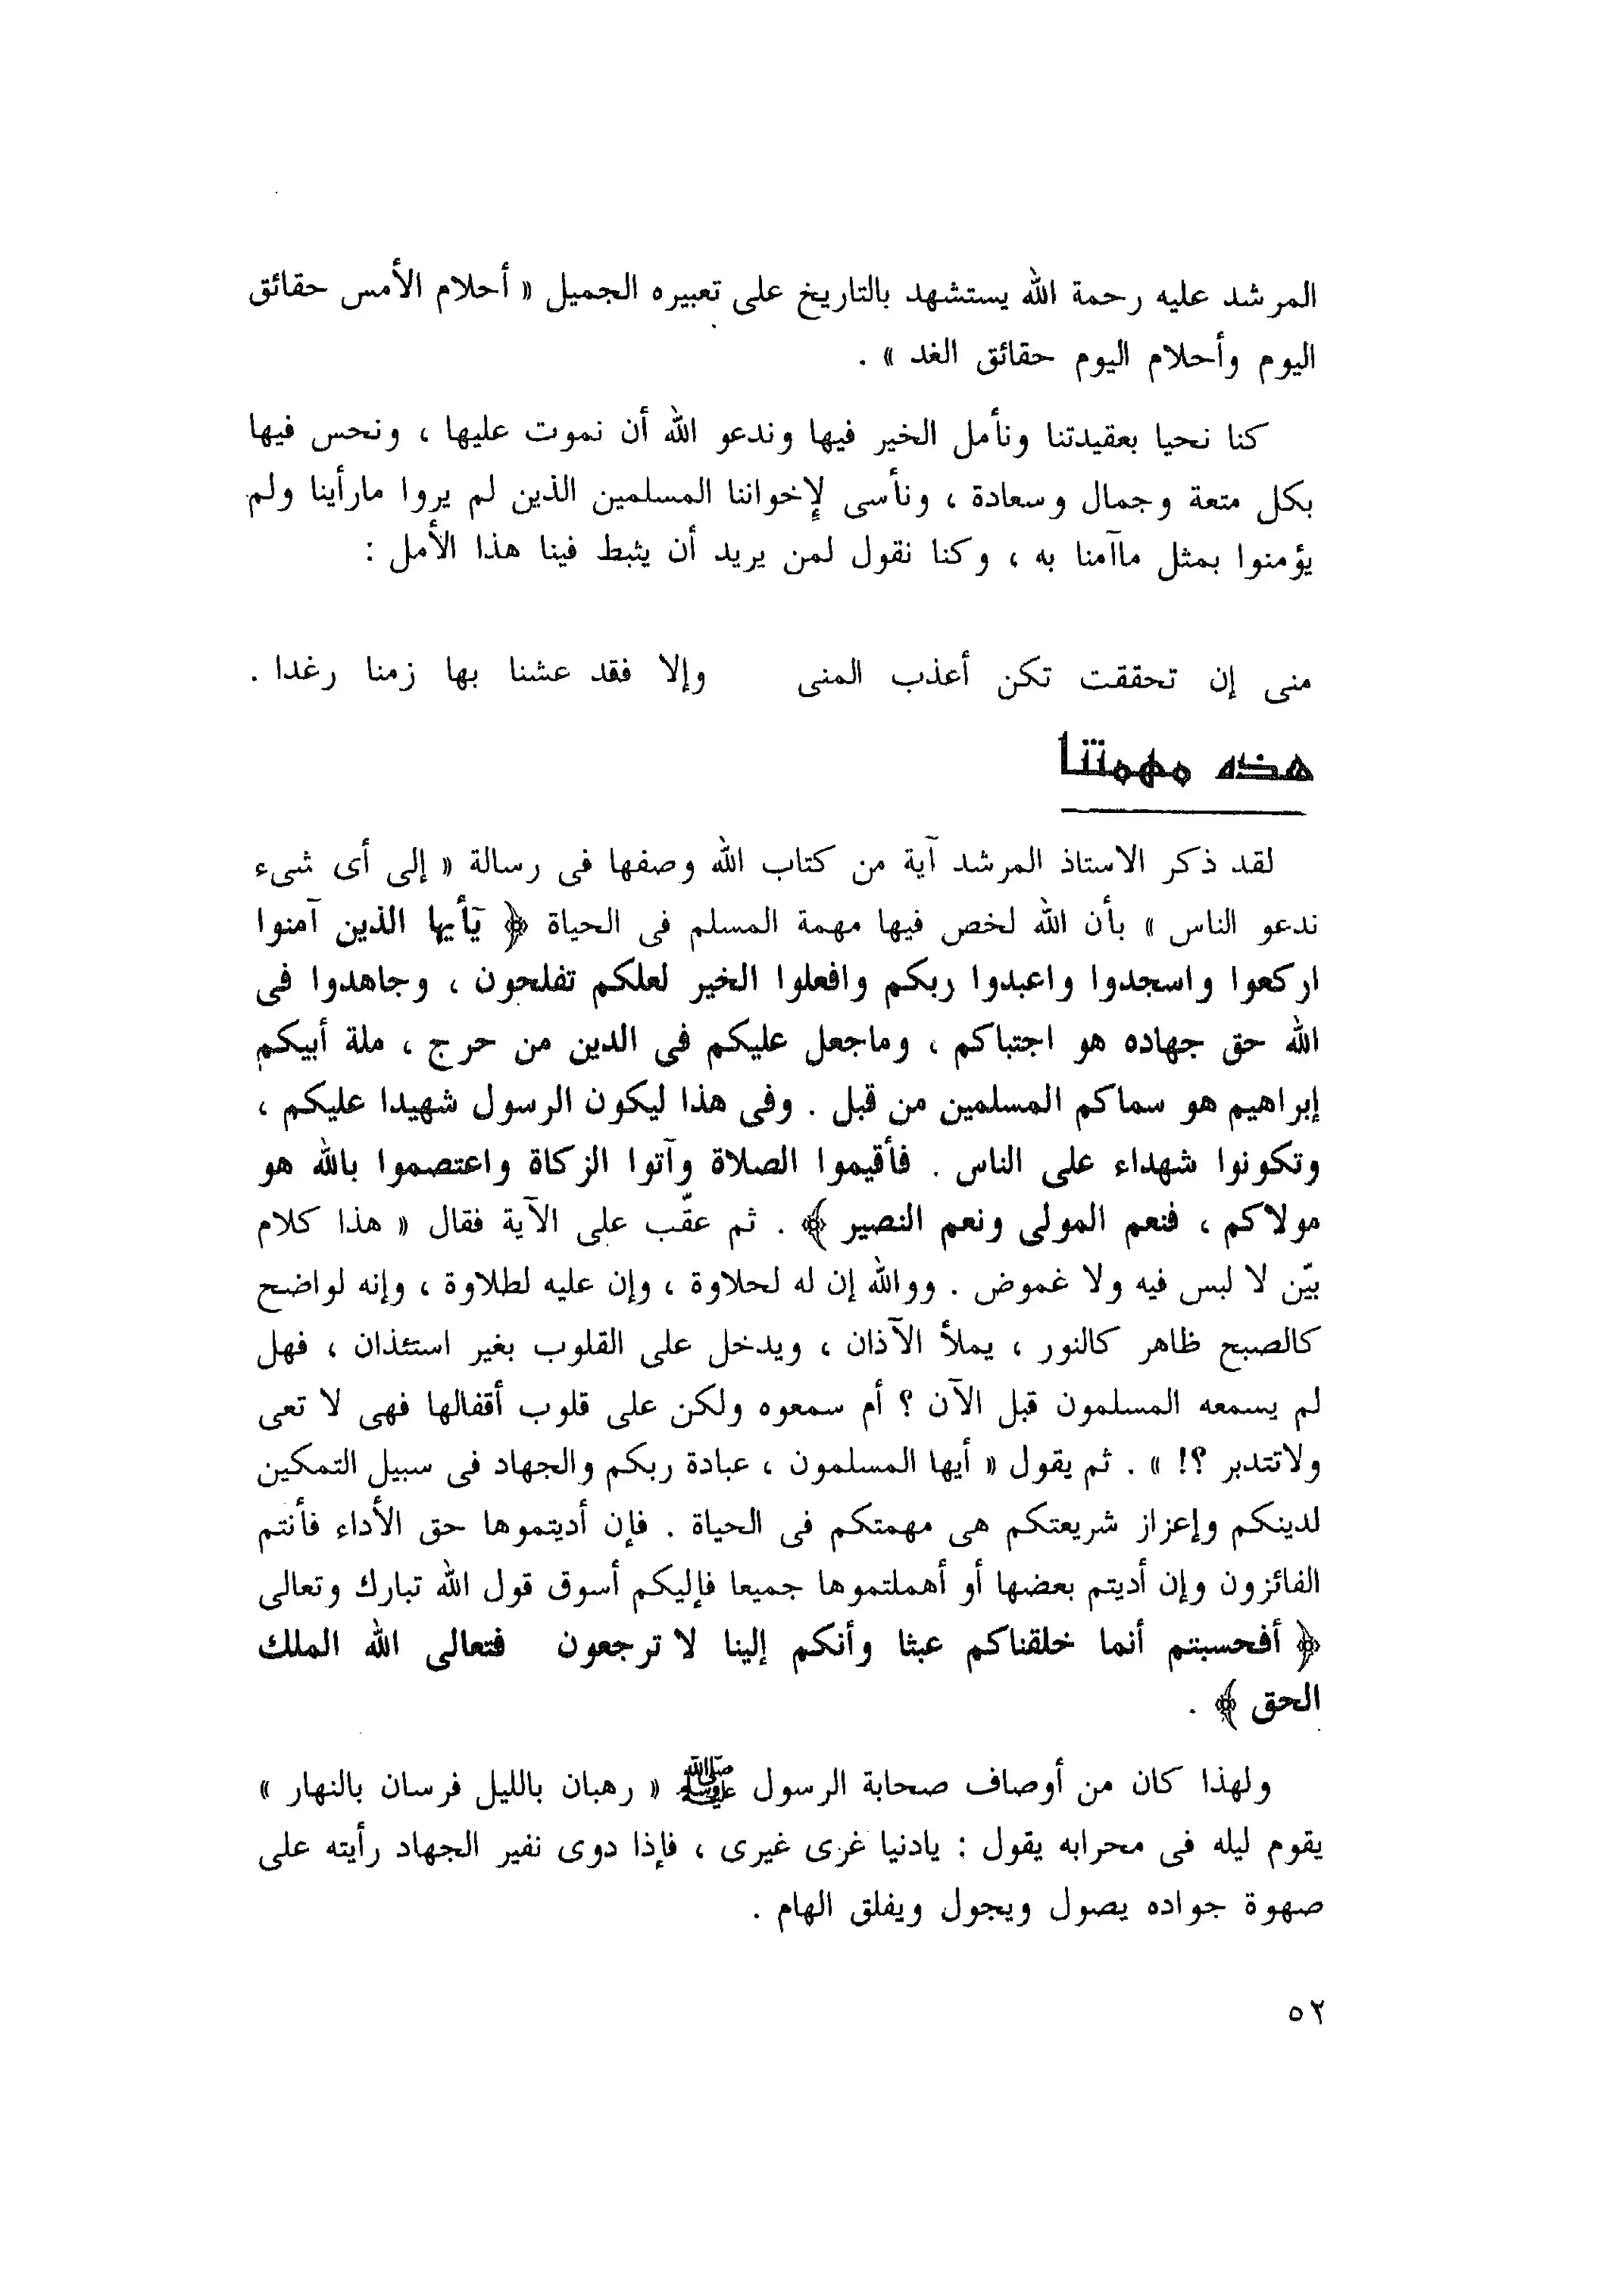 المرشد عليه رحمة الله يستشهد بالتاريخ على تعبيره الجميل « أحلام الأمس حقائق
اليوم وأحلام اليوم حقائق الغد » .
كنا نحيا بعقيدتنا ونأمل الخير فيها وندعو الله أن نموت عليها ، ونحس فيها
بكل متعة وجمال وسعادة ، ونأسى لإخواننا المسلمين الذين لم يروا مارأينا ولم
يؤمنوا بمثل ماآمنا به ، وكنا نقول لمن يريد أن يثبط فينا هذا الأمل :
منى إن تحققت تكن أعذب المنى وإلا فقد عشنا بها زمنا رغدا .
هذه مهمتنا
لقد ذكر الاستاذ المرشد آية من كتاب الله وصفها فى رسالة « إلى أى شىء
ندعو الناس » بأن الله لخص فيها مهمة المسلم فى الحياة ﴿ يَٰأيها الذين آمنوا
اركعوا واسجدوا واعبدوا ربكم وافعلوا الخير لعلكم تفلحون ، وجاهدوا فى
الله حق جهاده هو اجتباكم ، وماجعل عليكم فى الدين من حرج ، ملة أبيكم
إبراهيم هو سماكم المسلمين من قبل . وفى هذا ليكون الرسول شهيدا عليكم ،
وتكونوا شهداء على الناس . فأقيموا الصلاة وآتوا الزكاة واعتصموا بالله هو
مولاكم ، فنعم المولى ونعم النصير ﴾ . ثم عقّب على الآية فقال « هذا كلام
بيّن لا لبس فيه ولا غموض . ووالله إن له لحلاوة ، وإن عليه لطلاوة ، وإنه لواضح
كالصبح ظاهر كالنور ، يملأ الآذان ، ويدخل على القلوب بغير استئذان ، فهل
لم يسمعه المسلمون قبل الآن ؟ أم سمعوه ولكن على قلوب أقفالها فهى لا تعى
ولاتتدبر ؟! » . ثم يقول « أيها المسلمون ، عبادة ربكم والجهاد فى سبيل التمكين
لدينكم وإعزاز شريعتكم هى مهمتكم فى الحياة . فإن أديتموها حق الأداء فأنتم
الفائزون وإن أديتم بعضها أو أهملتموها جميعا فإليكم أسوق قول الله تبارك وتعالى
﴿ أفحسبتم أنما خلقناكم عبثا وأنكم إلينا لا ترجعون فتعالى الله الملك
الحق ﴾ .
ولهذا كان من أوصاف صحابة الرسول ﷺ « رهبان بالليل فرسان بالنهار »
يقوم ليله فى محرابه يقول : يادنيا غرى غيرى ، فإذا دوى نفير الجهاد رأيته على
صهوة جواده يصول ويجول ويفلق الهام .
٥٢